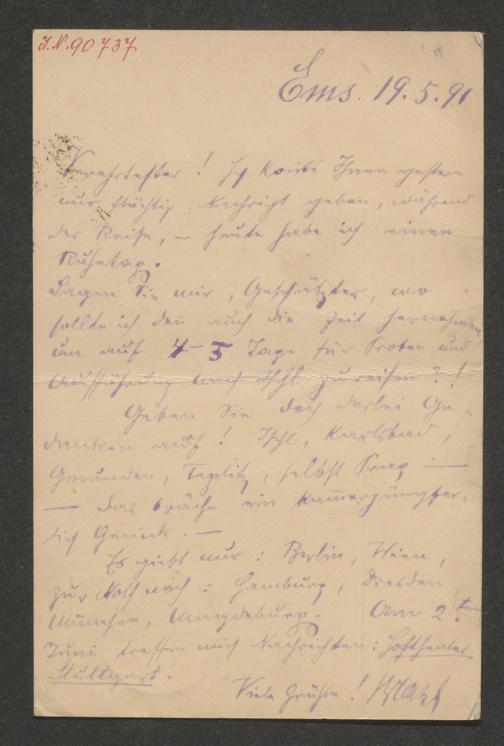 J.N. 90737
Ems. 19.5.91
Verehrtester! Ich konnte Ihnen gestern
nur flüchtig Nachricht geben, während
der Reise, – heute habe ich einen
Ruhetag.
Sagen Sie mir, Geschätzter, wo
sollte ich den auch die Zeit hernehmen,
um auf 4–5 Tage für Proben und
Aufführung nach Ischl zu reisen?!
Geben Sie doch derlei Ge-
danken auf! Ischl, Karlsbad,
Gmunden, Teplitz, selbst Prag —
— das bräche ein
Genick. —
Es giebt nur: Berlin, Wien,
zur Noth noch: Hamburg, Dresden
München, Magdeburg. Am 2.ten
Juni treffen mich Nachrichten: Hoftheater
Stuttgart.
Viele Grüße!